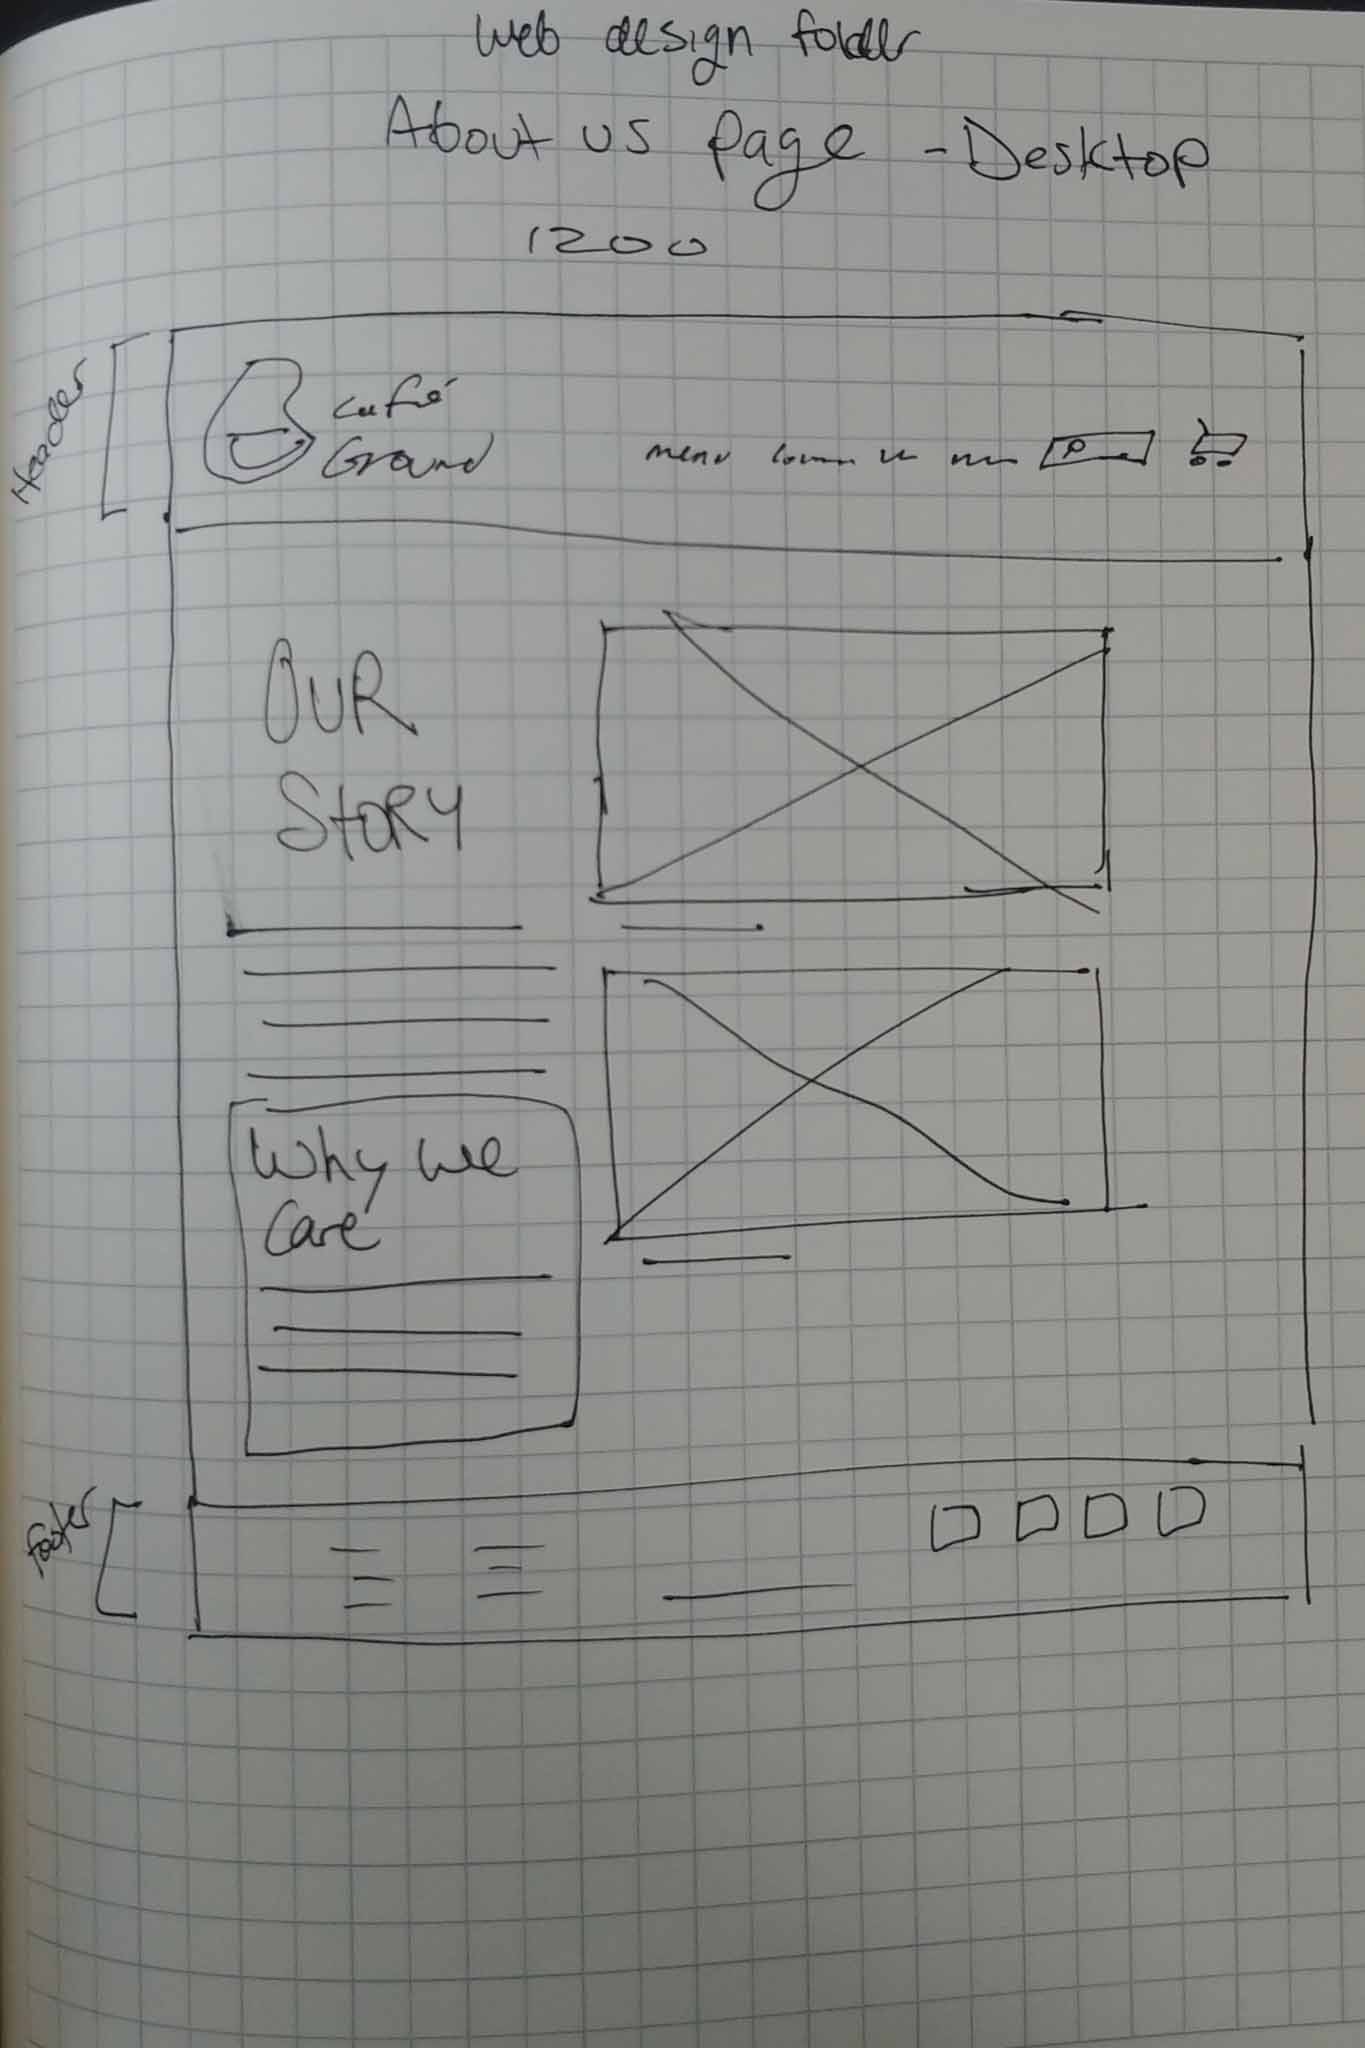 Web design folder
About us page - Desktop
1200
Header
Café
Ground
menu
OUR
STORY
Why we
Care
footer